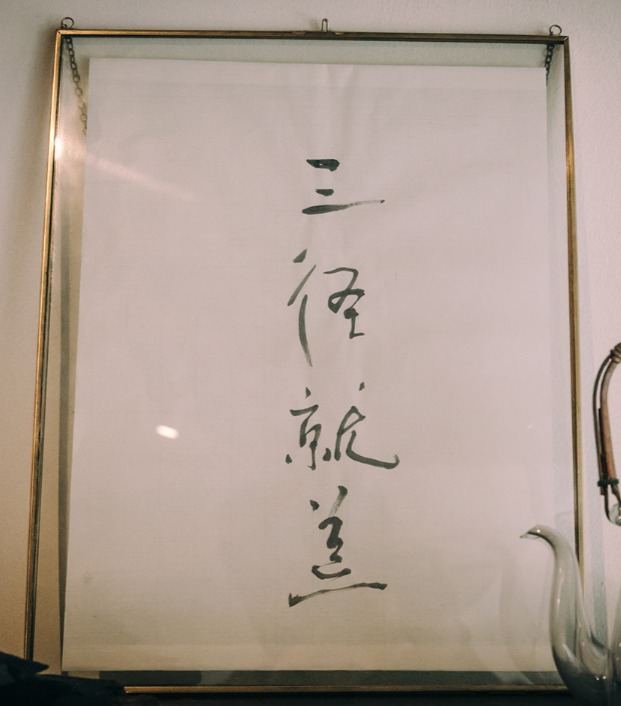 三
径
就
荒